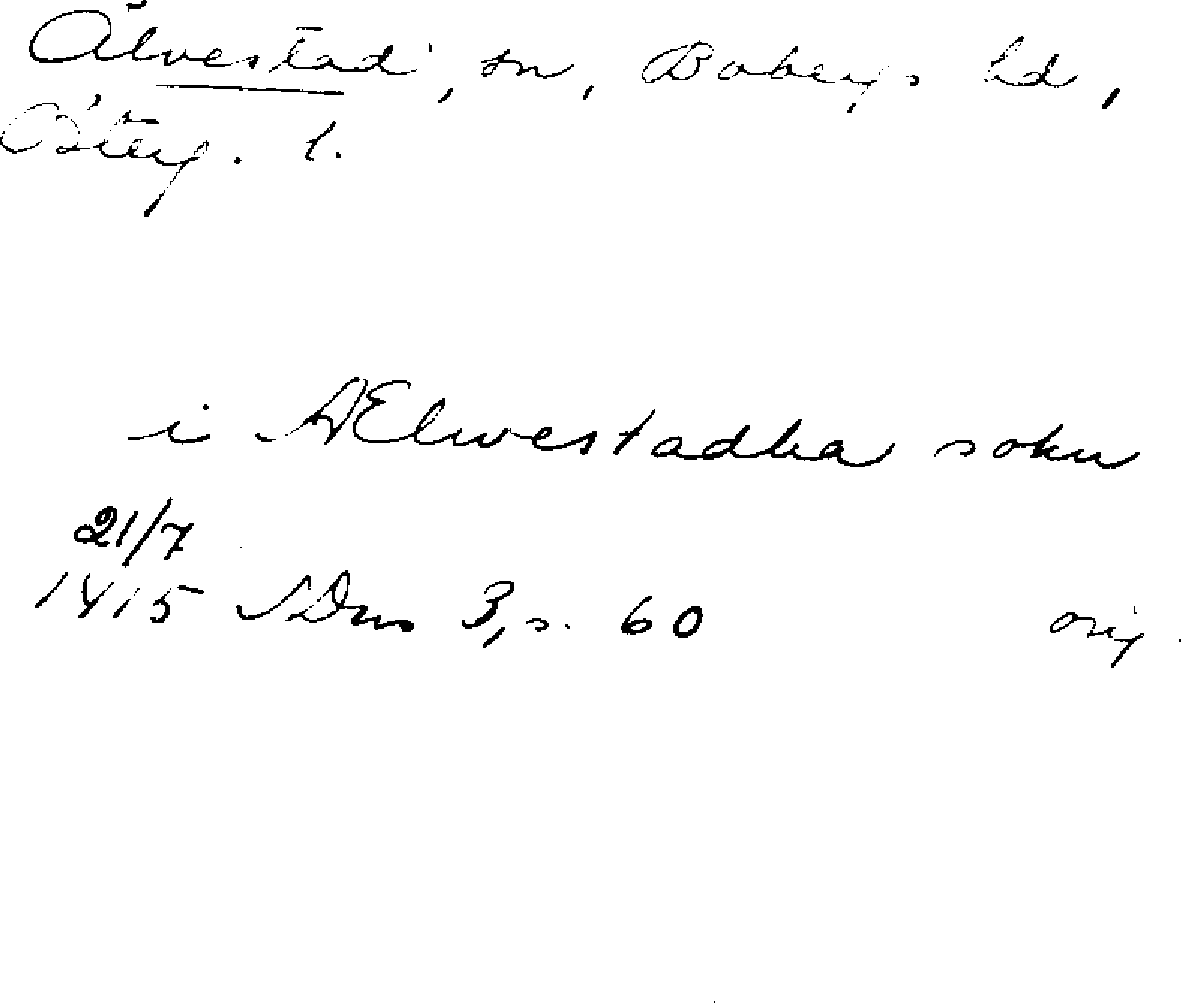 Älvestad, sn, Bobergs hd,
Österg. l.
i ÆElwestadha sokn
21/7
1415 SDns 3, s. 60 orig.